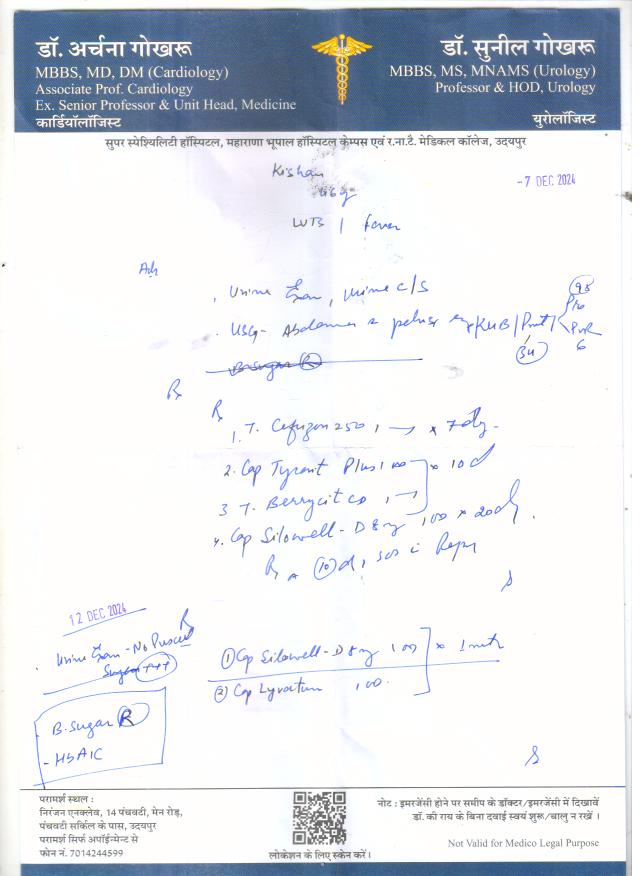 डॉ. अर्चना गोखरू
MBBS, MD, DM (Cardiology)
Associate Prof. Cardiology
Ex. Senior Professor & Unit Head, Medicine
कार्डियॉलॉजिस्ट
डॉ. सुनील गोखरू
MBBS, MS, MNAMS (Urology)
Professor & HOD, Urology
युरोलॉजिस्ट
सुपर स्पेश्यिलिटी हॉस्पिटल, महाराणा भूपाल हॉस्पिटल केम्पस एवं र.ना.टै. मेडिकल कॉलेज, उदयपुर
Kishan
- 7 DEC 2024
LUTS / fever
Urine Exam, Urine c/s
USG- Abdomen pelvis KUB / Prost /
B. Sugar R
Rx
Rx
1. T. 250 1 → x 7 d
2. Cap Plus 1 00 x 10 d
3 T. Berrycit 1 →
4. Cap Silowell-D 8 mg 100 x 20 d
10 d, sos c Report
12 DEC 2024
Rx
Urine Exam - No Puscell
Sugar +++
① Cap Silowell-D 8 mg 100 x 1 mth
② Cap 100
B. Sugar R
- HbA1C
परामर्श स्थल :
निरंजन एनक्लेव, 14 पंचवटी, मेन रोड़,
पंचवटी सर्किल के पास, उदयपुर
परामर्श सिर्फ अपॉईन्मेन्ट से
फोन नं. 7014244599
लोकेशन के लिए स्केन करें।
नोट : इमरजेंसी होने पर समीप के डॉक्टर/इमरजेंसी में दिखावें
डॉ. की राय के बिना दवाई स्वयं शुरू/चालु न रखें ।
Not Valid for Medico Legal Purpose